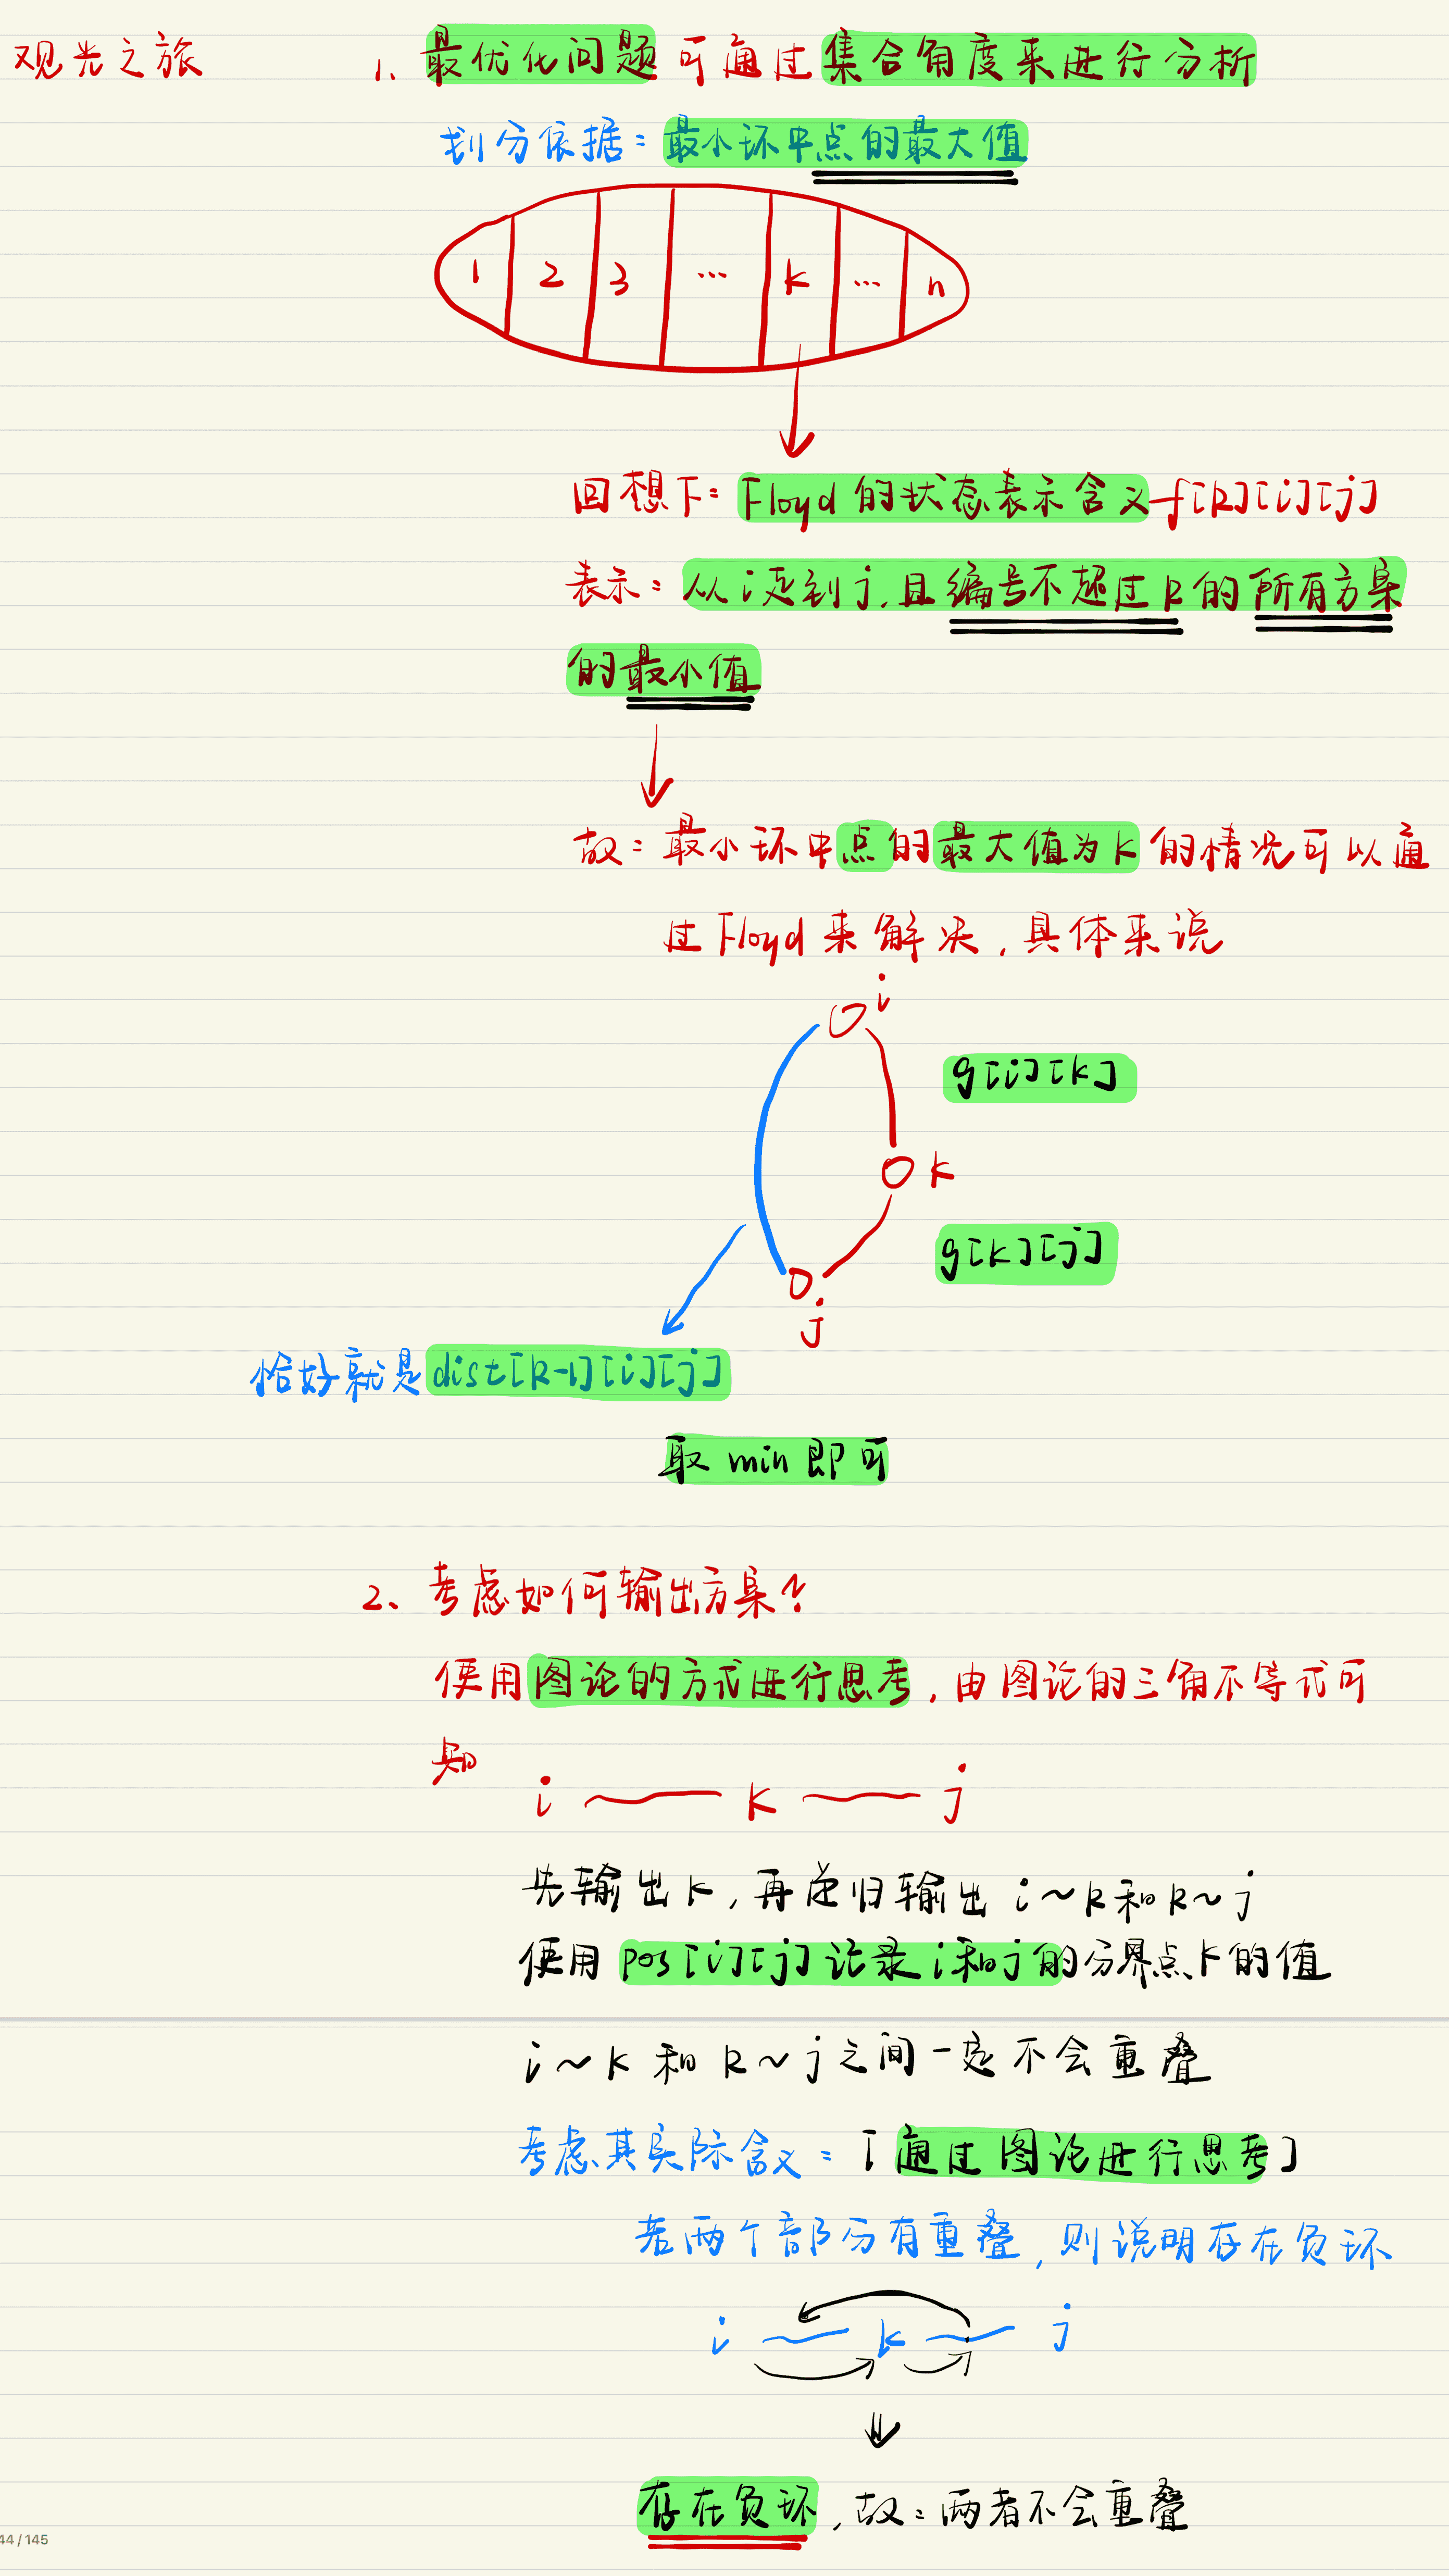 观光之旅
1、最优化问题可通过集合角度来进行分析
划分依据：最小环中点的最大值
1 2 3 … k … n
回想下：Floyd的状态表示含义f[k][i][j]
表示：从i走到j，且编号不超过k的所有方案
的最小值
故：最小环中点的最大值为k的情况可以通
过Floyd来解决，具体来说
i
g[i][k]
k
g[k][j]
j
恰好就是dist[k-1][i][j]
取min即可
2、考虑如何输出方案？
使用图论的方式进行思考，由图论的三角不等式可
知
i k j
先输出k，再递归输出i~k和k~j
使用pos[i][j]记录i和j的分界点k的值
i~k和k~j之间一定不会重叠
考虑其实际含义：[通过图论进行思考]
若两个部分有重叠，则说明存在负环
i k j
存在负环，故：两者不会重叠
44/145